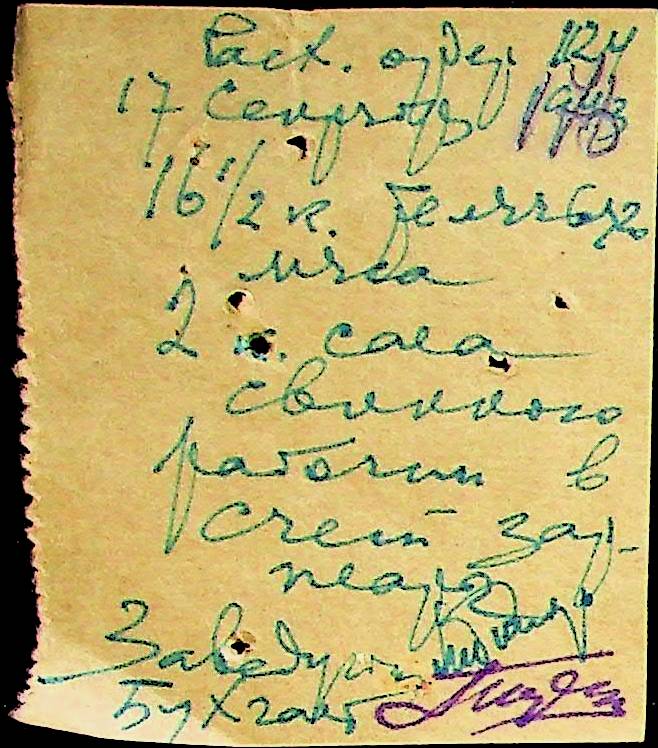 Расх. ордер
17 Сентября
16 1/2 к. телячьего
мяса
2 к. сала
свинного
рабочим в
счет зар-
платы
Заведующий
Бухгалт